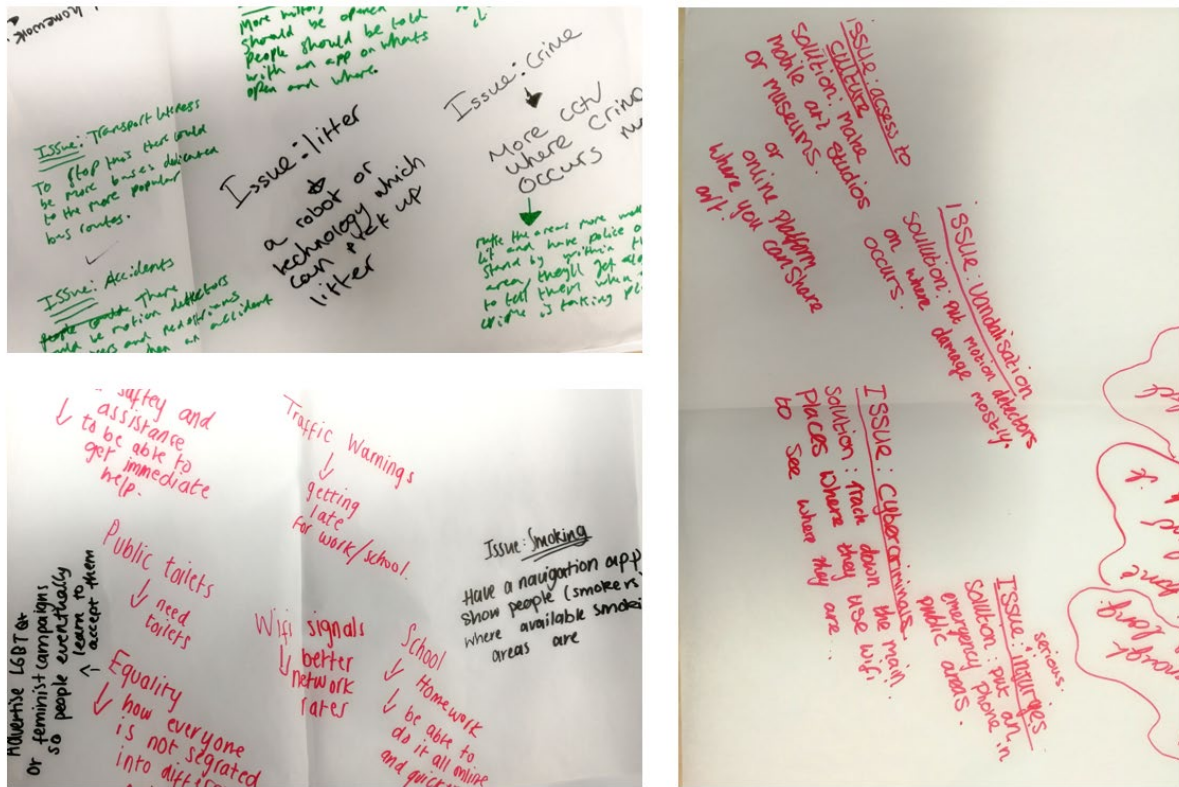 homework.
More
should be opened
people should be told
with an app on whats
open and where.
Issue: Transport lateness
To stop this there could
be more buses dedicated
to the more popular
bus routes.
Issue: Accidents
There
be motion detectors
and pedestrians
an accident
Issue: litter
a robot or
technology which
can pick up
litter
Issue: Crime
More CCTV
where crime
occurs
Make the areas more
lit and have police
stand by within
area, they'll get
to tell them when
crime is taking
saftey and
assistance
to be able to
get immediate
help.
Public toilets
need
toilets
Equality
how everyone
is not segrated
into
Advertise LGBTQ+
or feminist campaigns
so people eventhally
learn to
accept them
Traffic Warnings
getting
late
for work/school.
Wifi signals
better
network
rates
School
Homework
be able to
do it all online
and
Issue: Smoking
Have a navigation app
show people (smokers
where available
areas are
issue: access to
culture
solution: make
mobile art studios
or museums.
or
online platform
where you can share
art.
issue: vandalisation
soulution: put motion
on where damage mostly
occurs.
ISSUE: Cybercriminals.
solution: Track down the main
places where they use wifi
to see who they are.
Issue: injurges
serious.
solution: put an
emergency phone in
public areas.